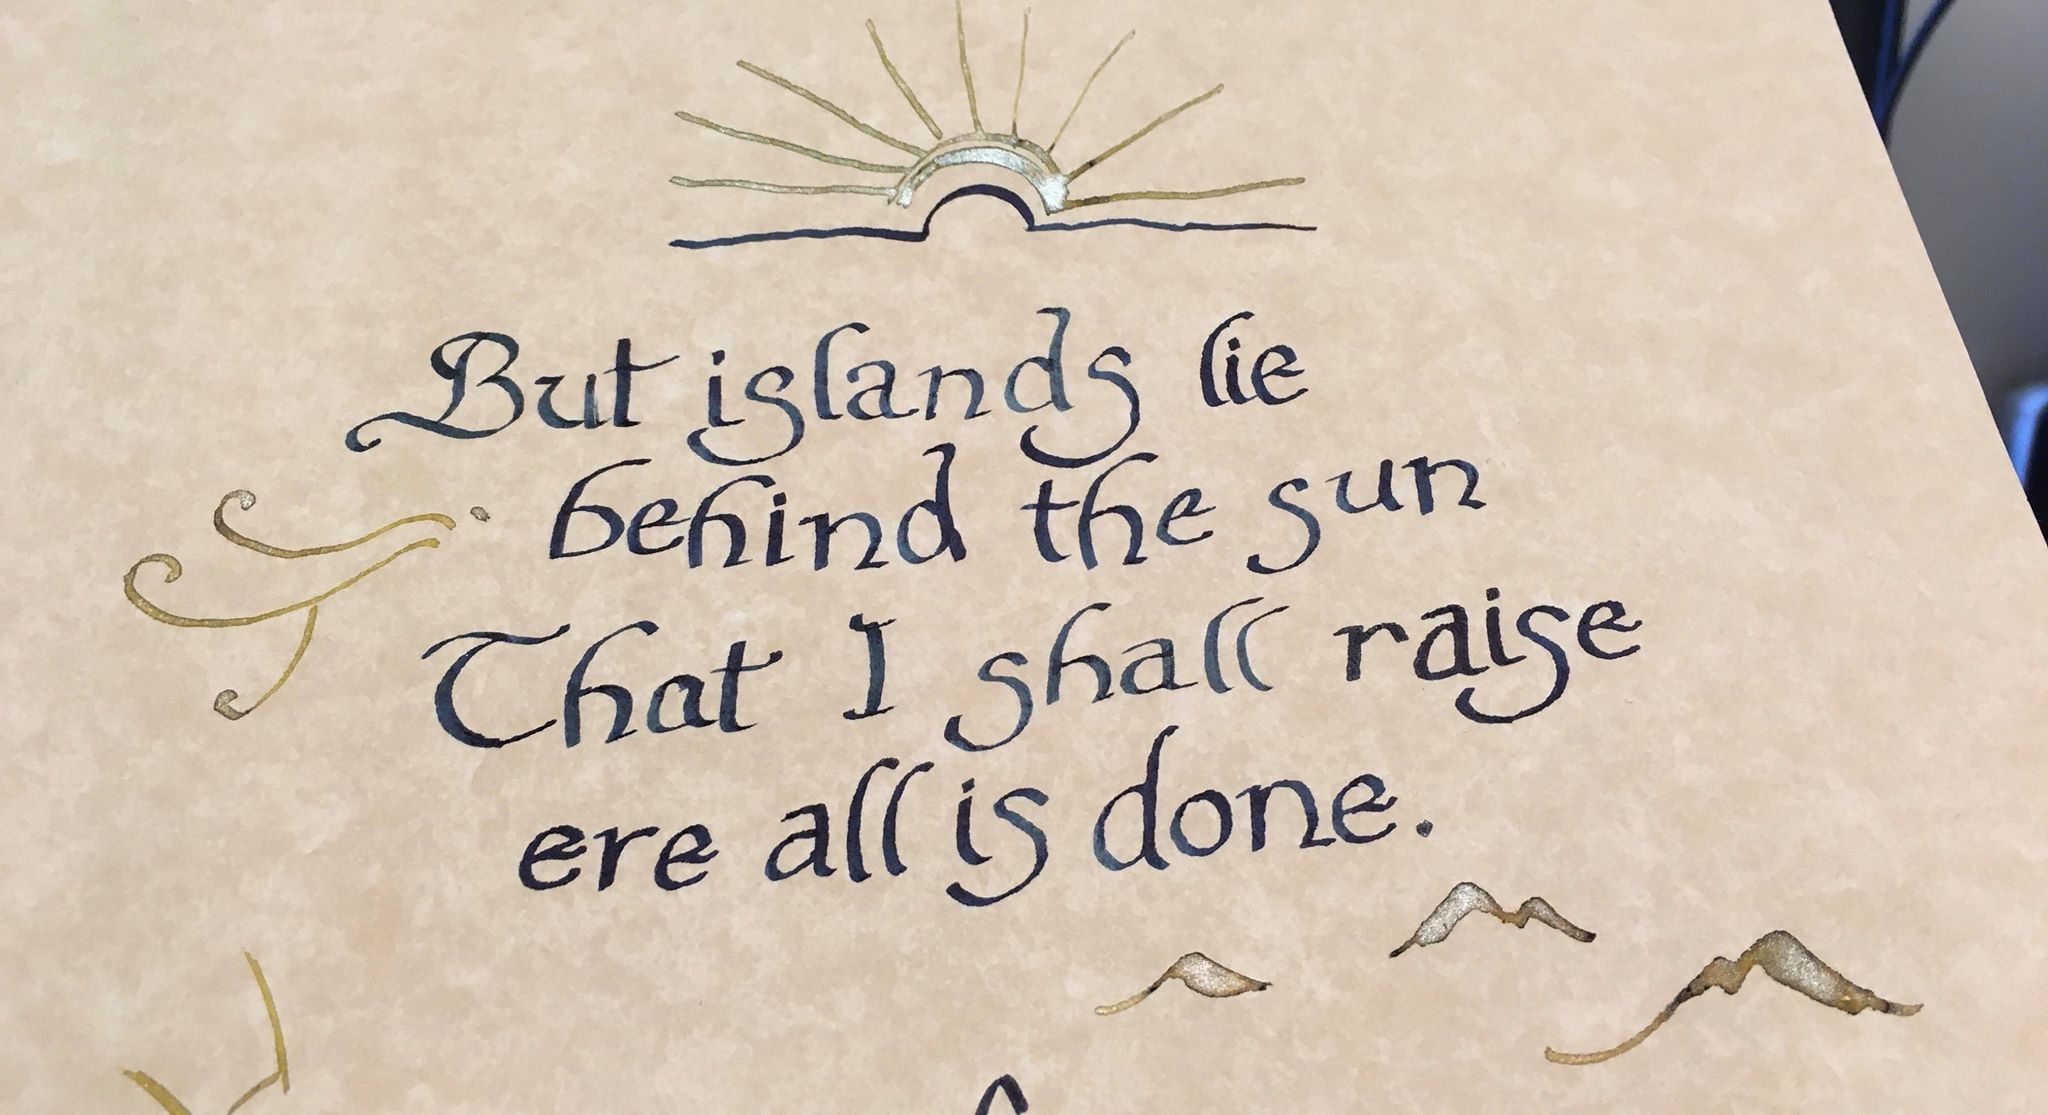 But islands lie
behind the sun
That I shall raise
ere all is done.